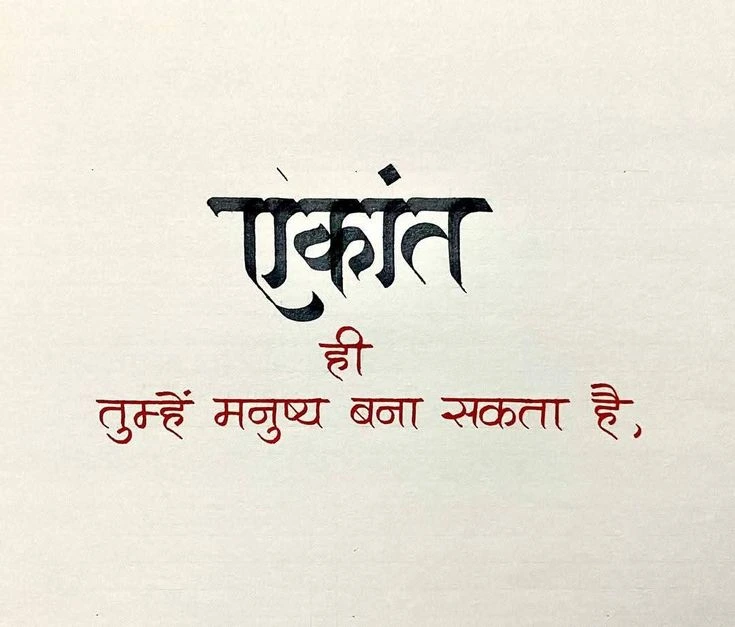 एकांत
ही
तुम्हें मनुष्य बना सकता है,